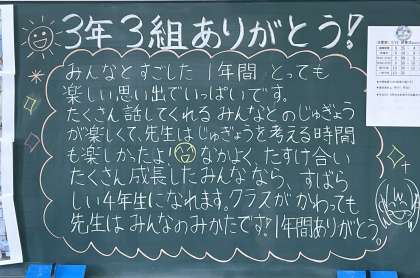 3年3組ありがとう!
みんなとすごした 1年間 とっても
楽しい思い出でいっぱいです。
たくさん話してくれる みんなとのじゅぎょう
が楽しくて、先生はじゅぎょうを考える時間
も楽しかったよ! なかよく、たすけ合い
たくさん成長したみんななら、すばら
しい4年生になれます。クラスがかわっても
先生はみんなのみかたです!1年間ありがとう。